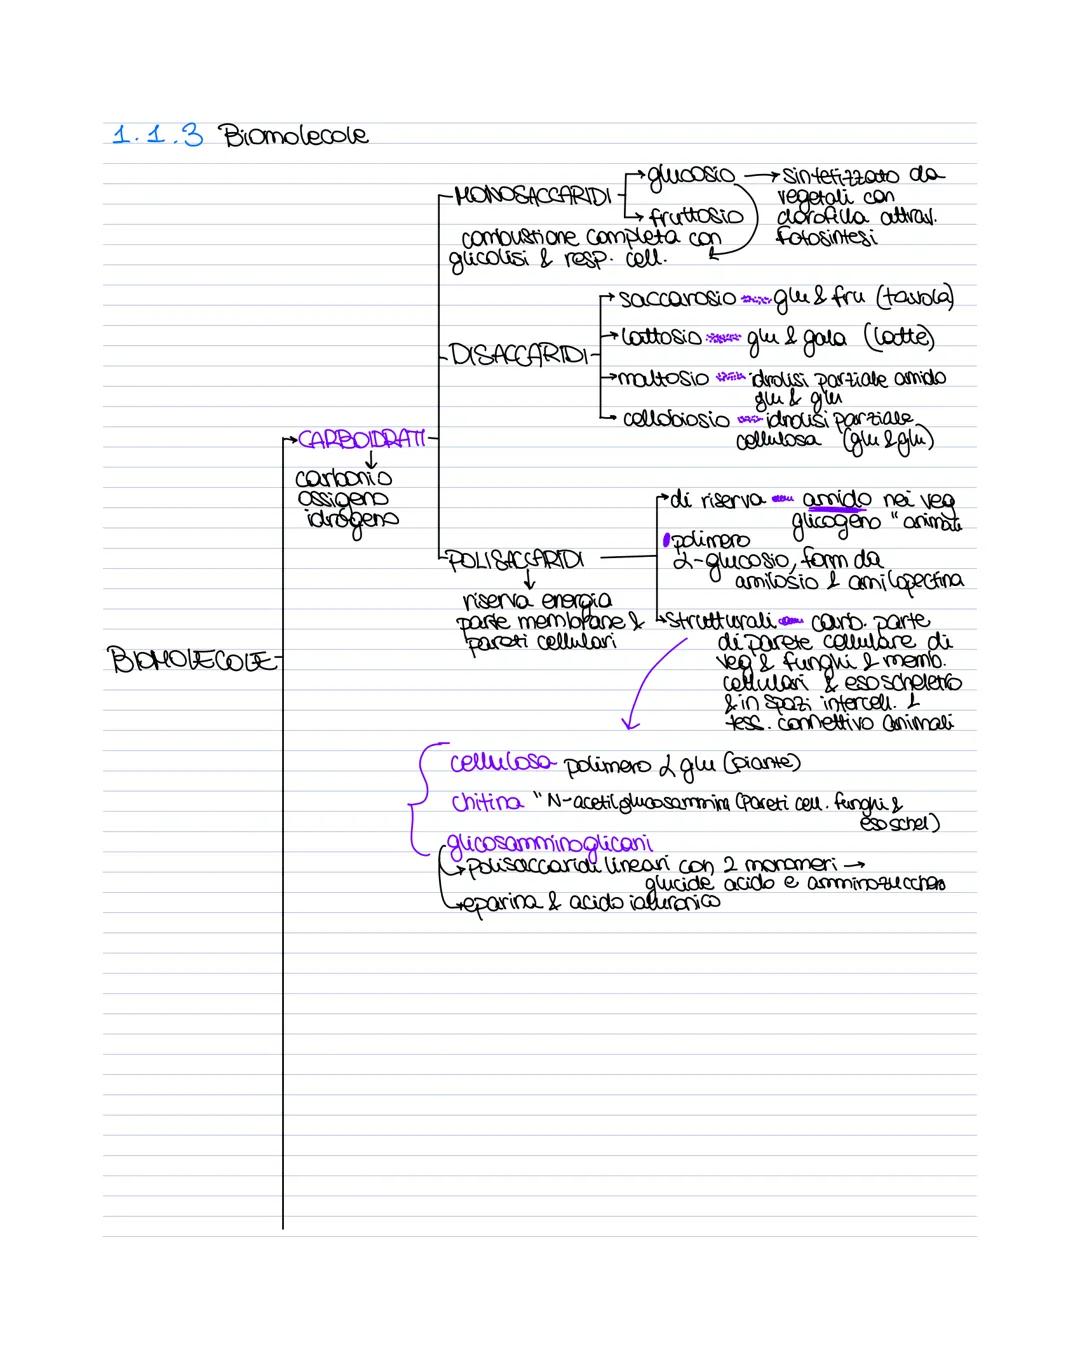 1.1.3 Biomolecole
MONOSACCARIDI
glucosio → sintetizzato da
vegetali con
clorofilla attrav.
fotosintesi
fruttosio
combustione completa con
glicolisi & resp. cell.
DISACCARIDI
saccarosio glu & fru (tavola)
lattosio glu & gala (latte)
maltosio idrolisi parziale amido
glu & glu
cellobiosio idrolisi parziale
cellulosa (glu & glu)
CARBOIDRATI
carbonio
ossigeno
idrogeno
POLISACCARIDI
riserva energia
parte membrane &
pareti cellulari
di riserva amido nei veg
glicogeno " animali
polimero
α-glucosio, form da
amilosio & amilopectina
strutturali carb. parte
di parete cellulare di
veg & funghi & memb.
cellulari & esoscheletro
& in spazi intercell. &
tess. connettivo animali
BIOMOLECOLE
cellulosa polimero α glu (piante)
chitina " N-acetilglucosammina (pareti cell. funghi &
esoschel)
glicosamminoglicani
polisaccaridi lineari con 2 monomeri →
glucide acido e amminozucchero
eparina & acido ialuronico